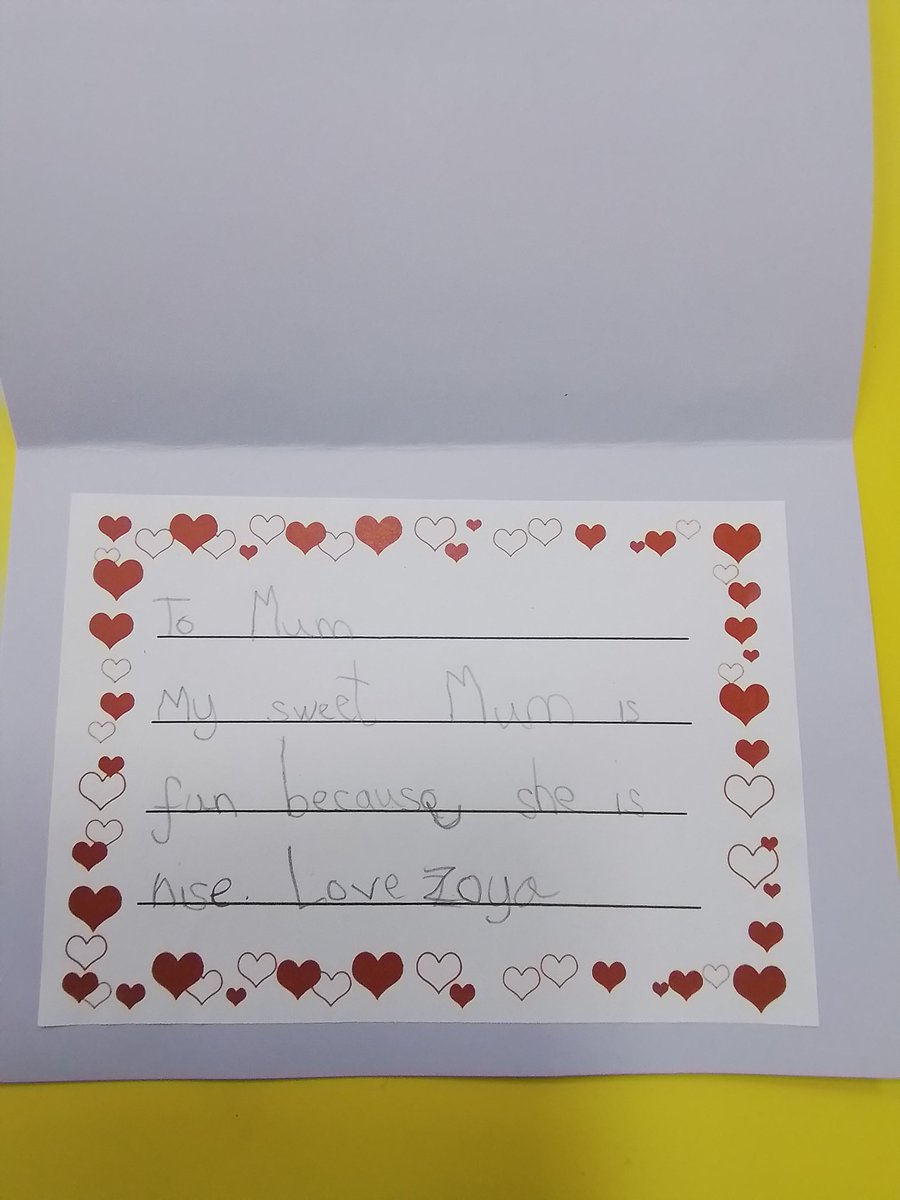 To Mum
My sweet Mum is
fun because she is
nise. Love Zoya